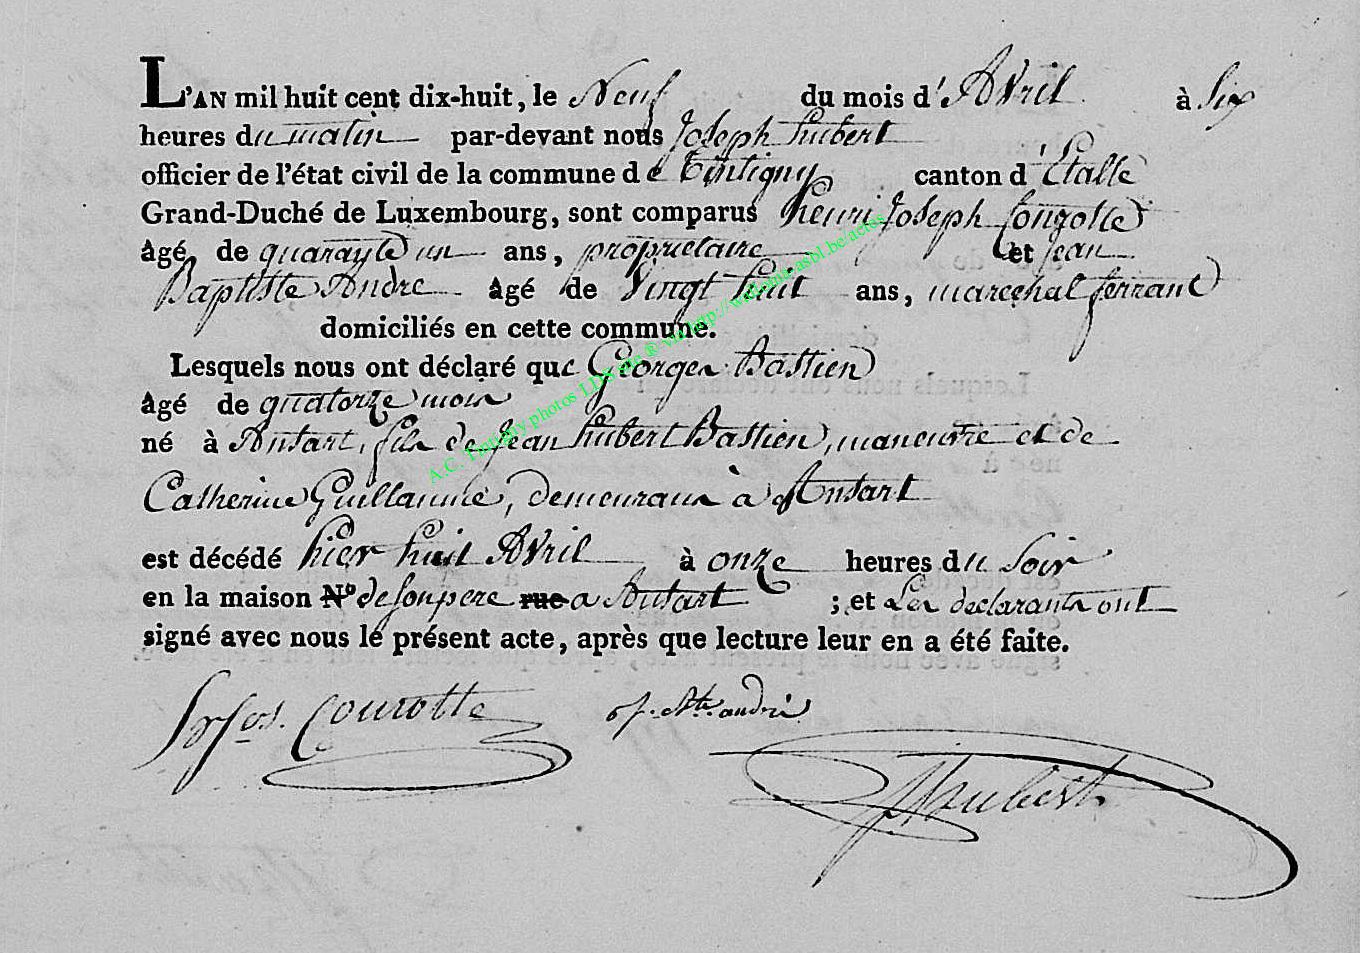 L'AN mil huit cent dix-huit, le Neuf du mois d'Avril à Six
heures du matin par-devant nous Joseph hubert
officier de l'état civil de la commune de Tintigny canton d'Etalle
Grand-Duché de Luxembourg, sont comparus henri Joseph
âgé de quarante un ans, proprietaire et jean
Baptiste Andre âgé de Vingt huit ans, marechal ferrant
domiciliés en cette commune.
Lesquels nous ont déclaré que Georges Bastien
âgé de quatorze mois
né à Ansart, fils de Jean hubert Bastien, maneuvre et de
Catherine Guillaume, demeurans à Ansart
est décédé hier huit Avril à onze heures du Soir
en la maison N° de son pere rue a Ansart ; et Les declarants ont
signé avec nous le présent acte, après que lecture leur en a été faite.
Courotte andré
Hubert
A.C. Tintigny photos LDS site ® via http://wallonia-asbl.be/actes